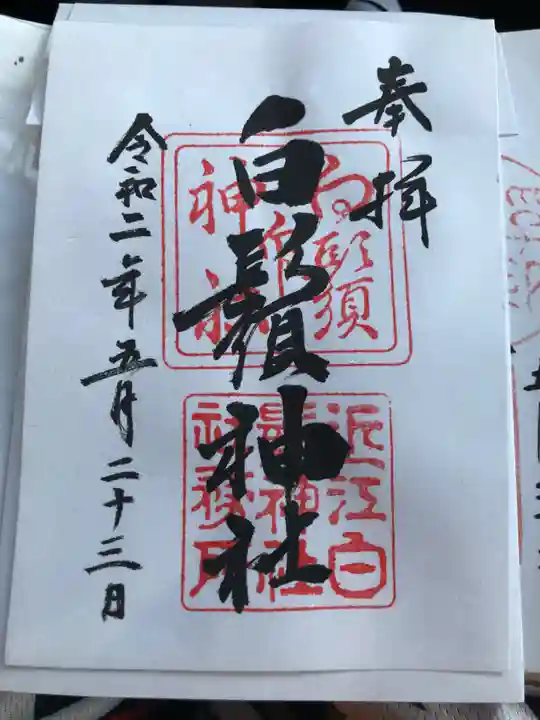 奉拝
白鬚神社
令和二年五月二十三日
近江白
鬚神社
社務所